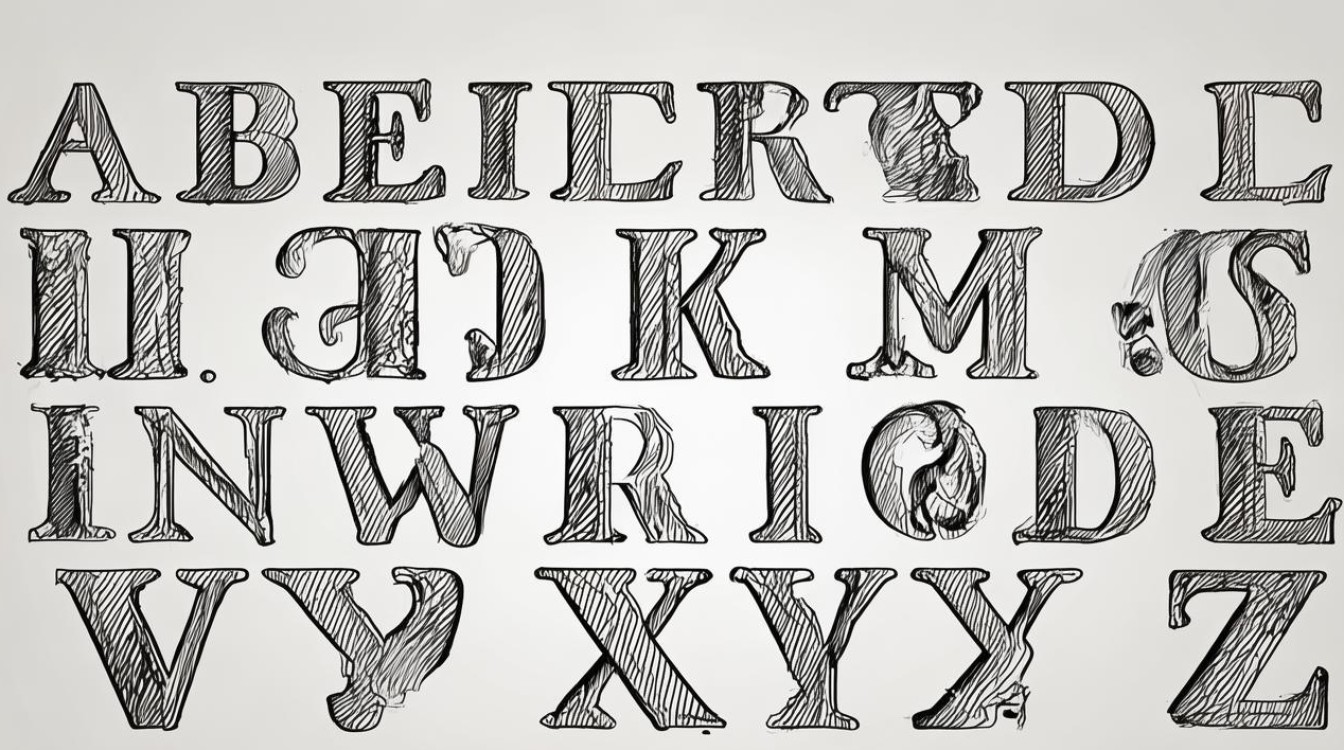 A B E I C R T D C
I I . K M S
I N W R I D E
V Y X Y X Z